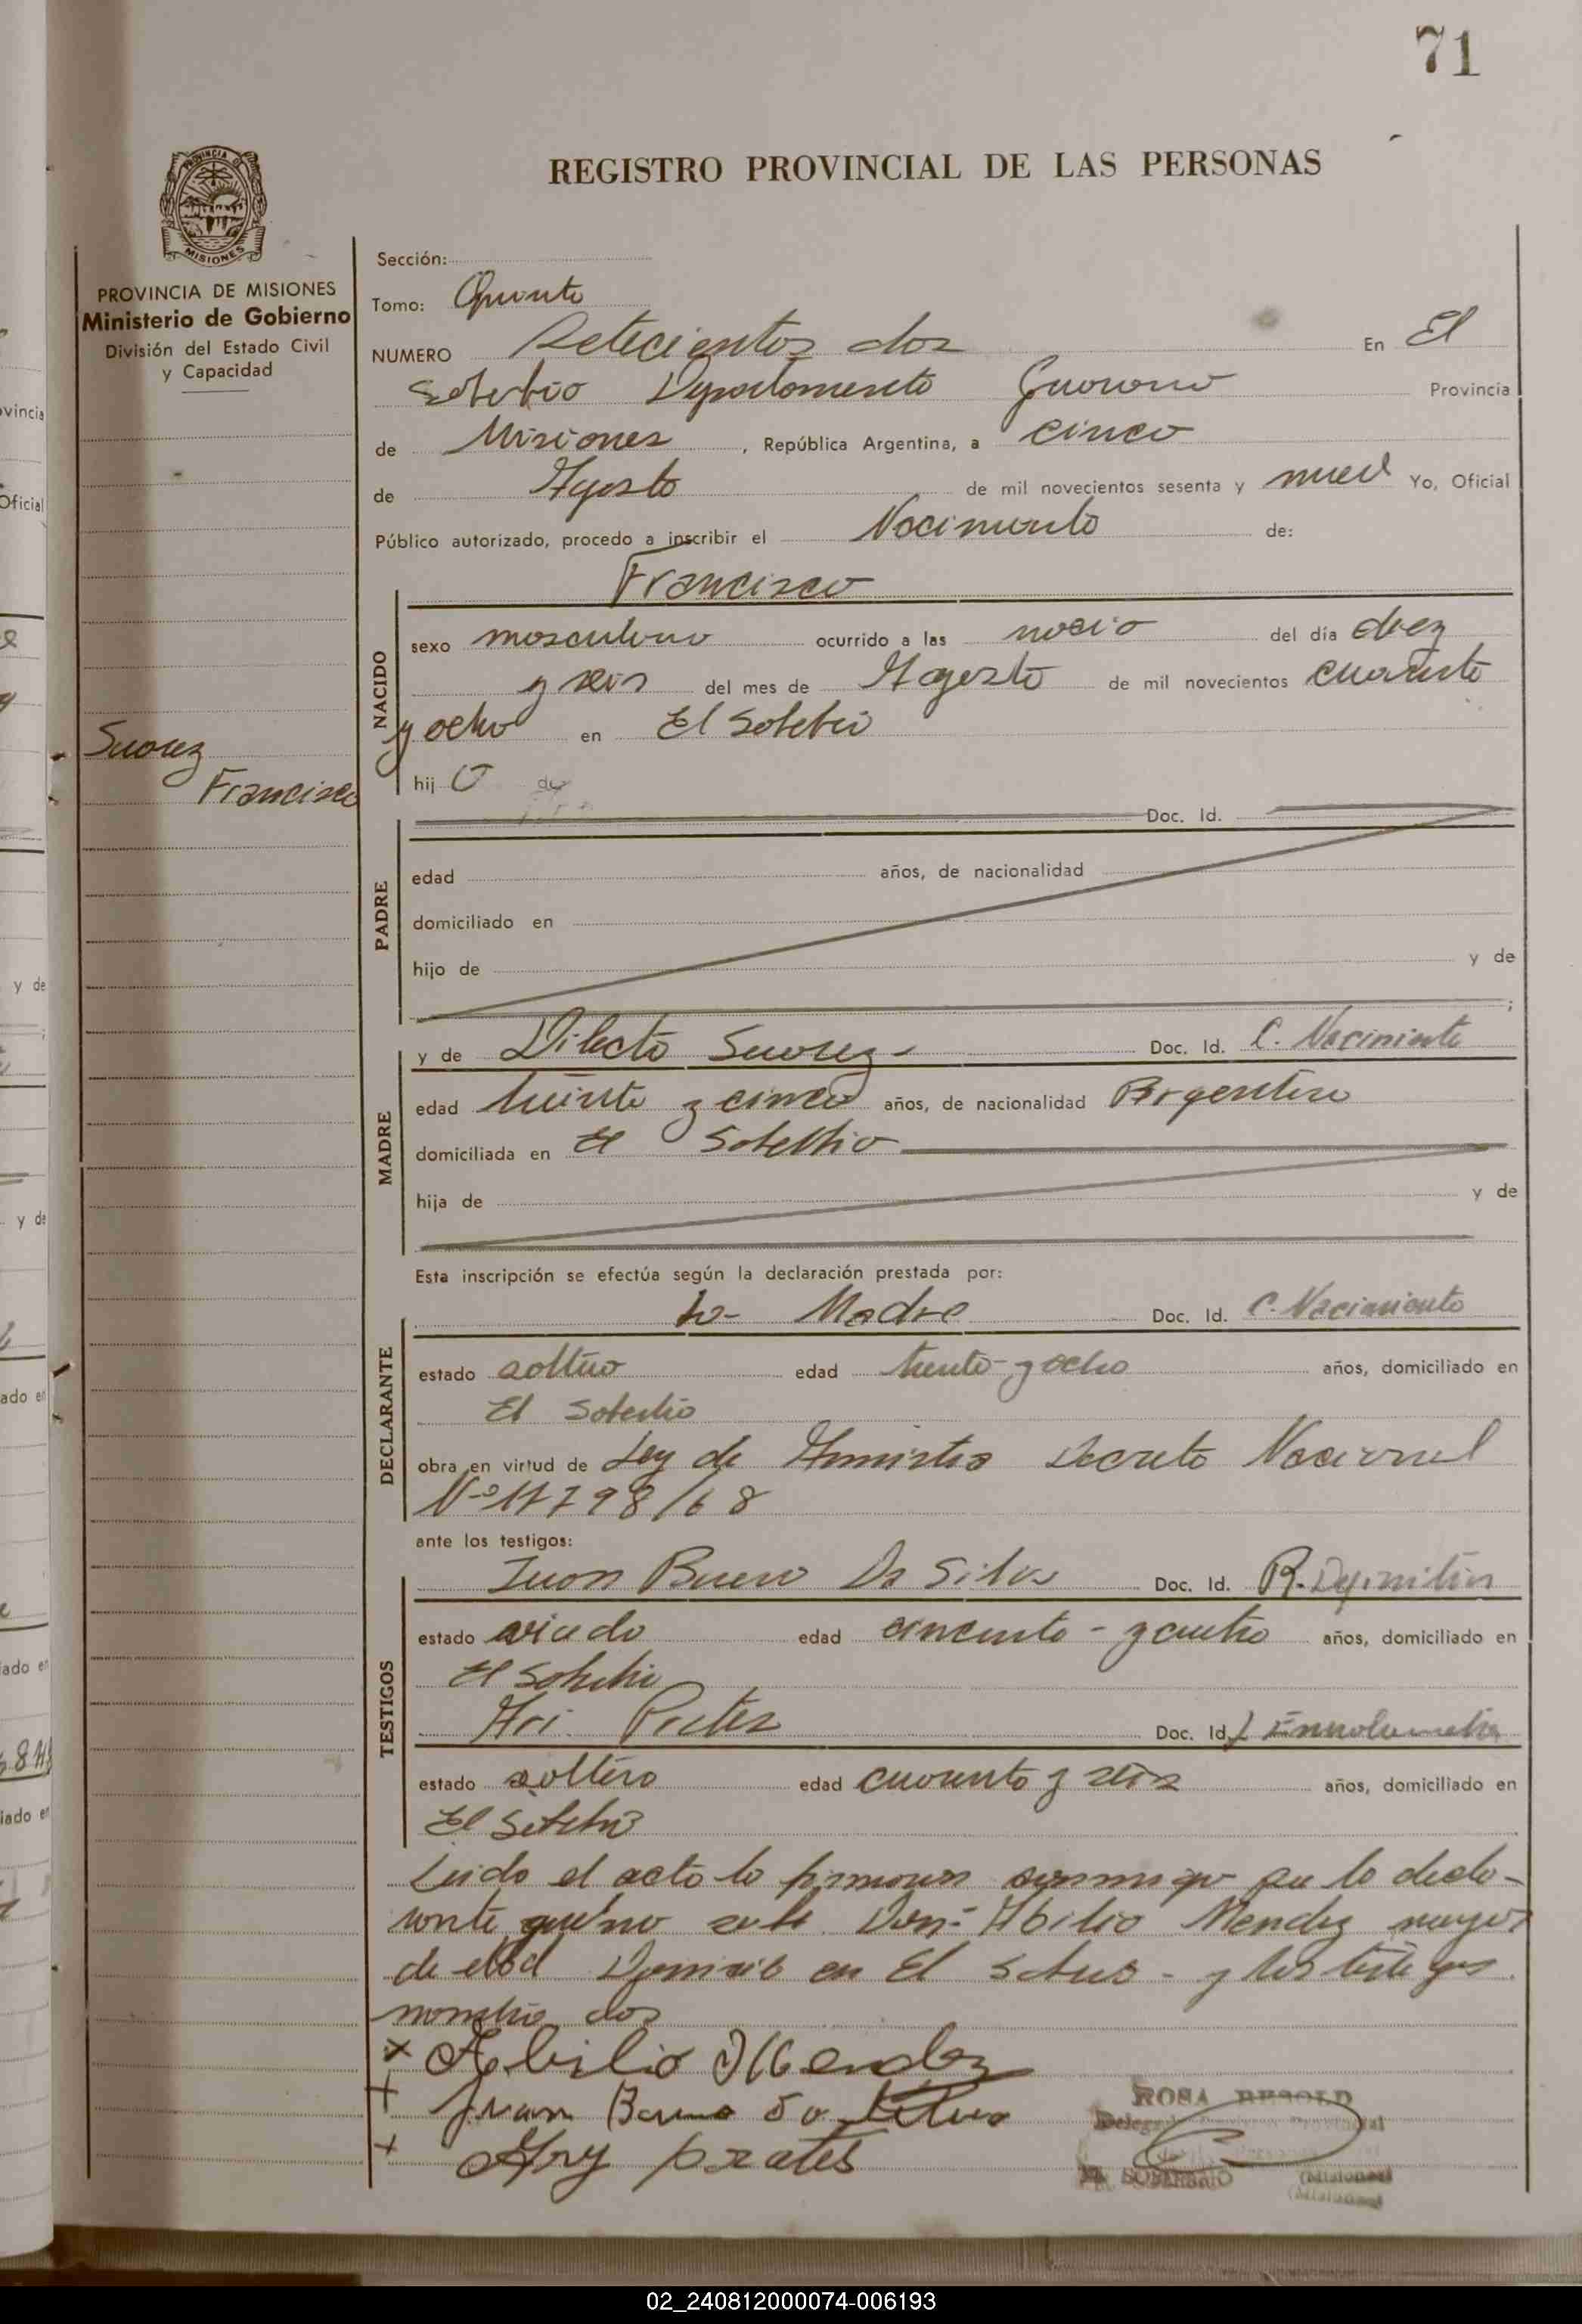 71
REGISTRO PROVINCIAL DE LAS PERSONAS
PROVINCIA DE MISIONES
Ministerio de Gobierno
División del Estado Civil
y Capacidad
Suarez
Francisco
Sección:
Tomo: Quinto
NUMERO Setecientos dos En El
Soberbio Departamento Guarani Provincia
de Misiones, República Argentina, a cinco
de Agosto de mil novecientos sesenta y nueve Yo, Oficial
Público autorizado, procedo a inscribir el Nacimiento de:
Francisco
NACIDO
sexo masculino ocurrido a las del día diez
y seis del mes de Agosto de mil novecientos cuarenta
y ocho en El Soberbio
hij o de
PADRE
Doc. Id.
edad años, de nacionalidad
domiciliado en
hijo de y de
MADRE
y de Suarez Doc. Id. C. Nacimiento
edad y cinco años, de nacionalidad Argentina
domiciliada en El Soberbio
hija de y de
Esta inscripción se efectúa según la declaración prestada por:
DECLARANTE
la Madre Doc. Id. C. Nacimiento
estado soltera edad treinta y ocho años, domiciliado en
El Soberbio
obra en virtud de Ley de Amnistia Decreto Nacional
Nº 17798/68
ante los testigos:
TESTIGOS
Juan Da Silva Doc. Id.
estado viudo edad cincuenta - y cuatro años, domiciliado en
El Soberbio
Ari Prates Doc. Id.
estado soltero edad cuarenta y seis años, domiciliado en
El Soberbio
Leido el acta la firman conmigo por la decla-
rante que no sabe Don Abilio Mendez mayor
de edad en El Soberbio - y los testigos
nombrados
x Abilio Mendez
+ Juan da Silva
+ Ary prates
ROSA BESOLD
EL SOBERBIO (Misiones)
(Misiones)
02_240812000074-006193